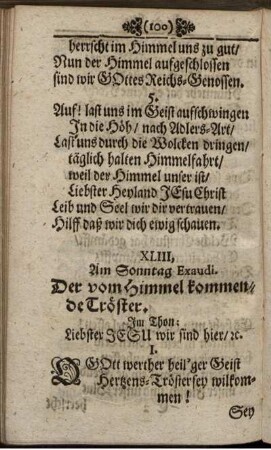 (100)
herrscht im Himmel uns zu gut/
Nun der Himmel aufgeschlossen
sind wir GOttes Reichs-Genossen.
5.
Auf! last uns im Geist aufschwingen
In die Höh/ nach Adlers-Art/
Last uns durch die Wolcken dringen/
täglich halten Himmelfahrt/
weil der Himmel unser ist/
Liebster Heyland JEsu Christ
Leib und Seel wir dir vertrauen/
Hilff daß wir dich ewig schauen.
XLIII,
Am Sonntag Exaudi.
Der vom Himmel kommen-
de Tröster.
Im Thon:
Liebster JESU wir sind hier/ ꝛc.
I.
O GOtt werther heil'ger Geist
Hertzens-Tröster sey wilkom-
men!
Sey